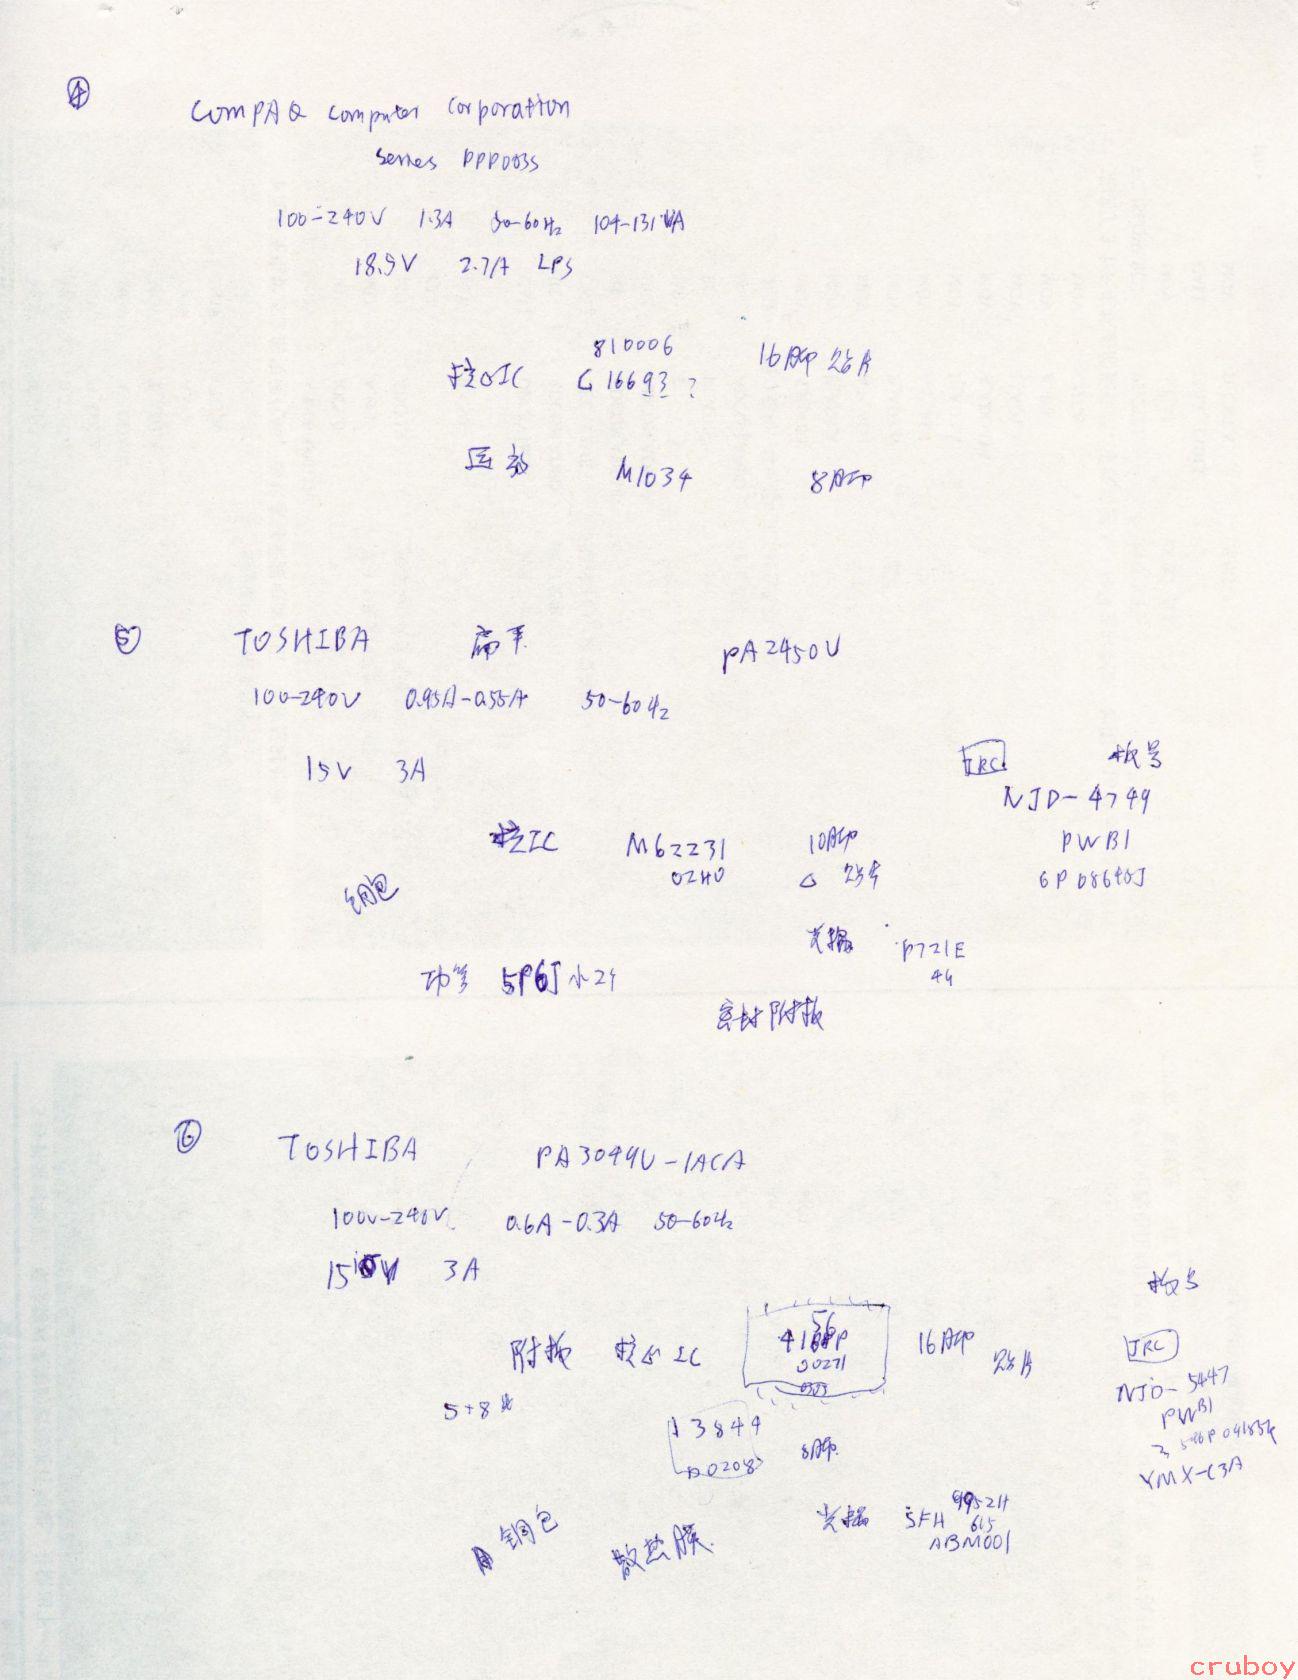 ④
COMPAQ Computer Corporation
Series PPP003S
100-240V 1.3A 50-60Hz 104-131VA
18.5V 2.7A LPS
810006
控芯IC G16693? 16脚 贴片
运放 M1034 8脚
⑤ TOSHIBA 扁平 PA2450U
100-240V 0.95A-0.55A 50-60Hz
15V 3A
JRC 板号
NJD-4749
控IC M62231 10脚 PWB1
02H0 贴片
铜包
光耦 P721E
功管 5P6J 小
密封附板
⑥
TOSHIBA PA3049U-1ACA
100V-240V 0.6A-0.3A 50-60Hz
15V 3A
板号
56
附板 控芯IC 16脚 贴片 JRC
00271
5+8 NJD-5447
PWB1
3844 8脚
0208 YMX-C3A
铜包 散热膜 光耦 SFH 9952H
615
ABM001
cruboy